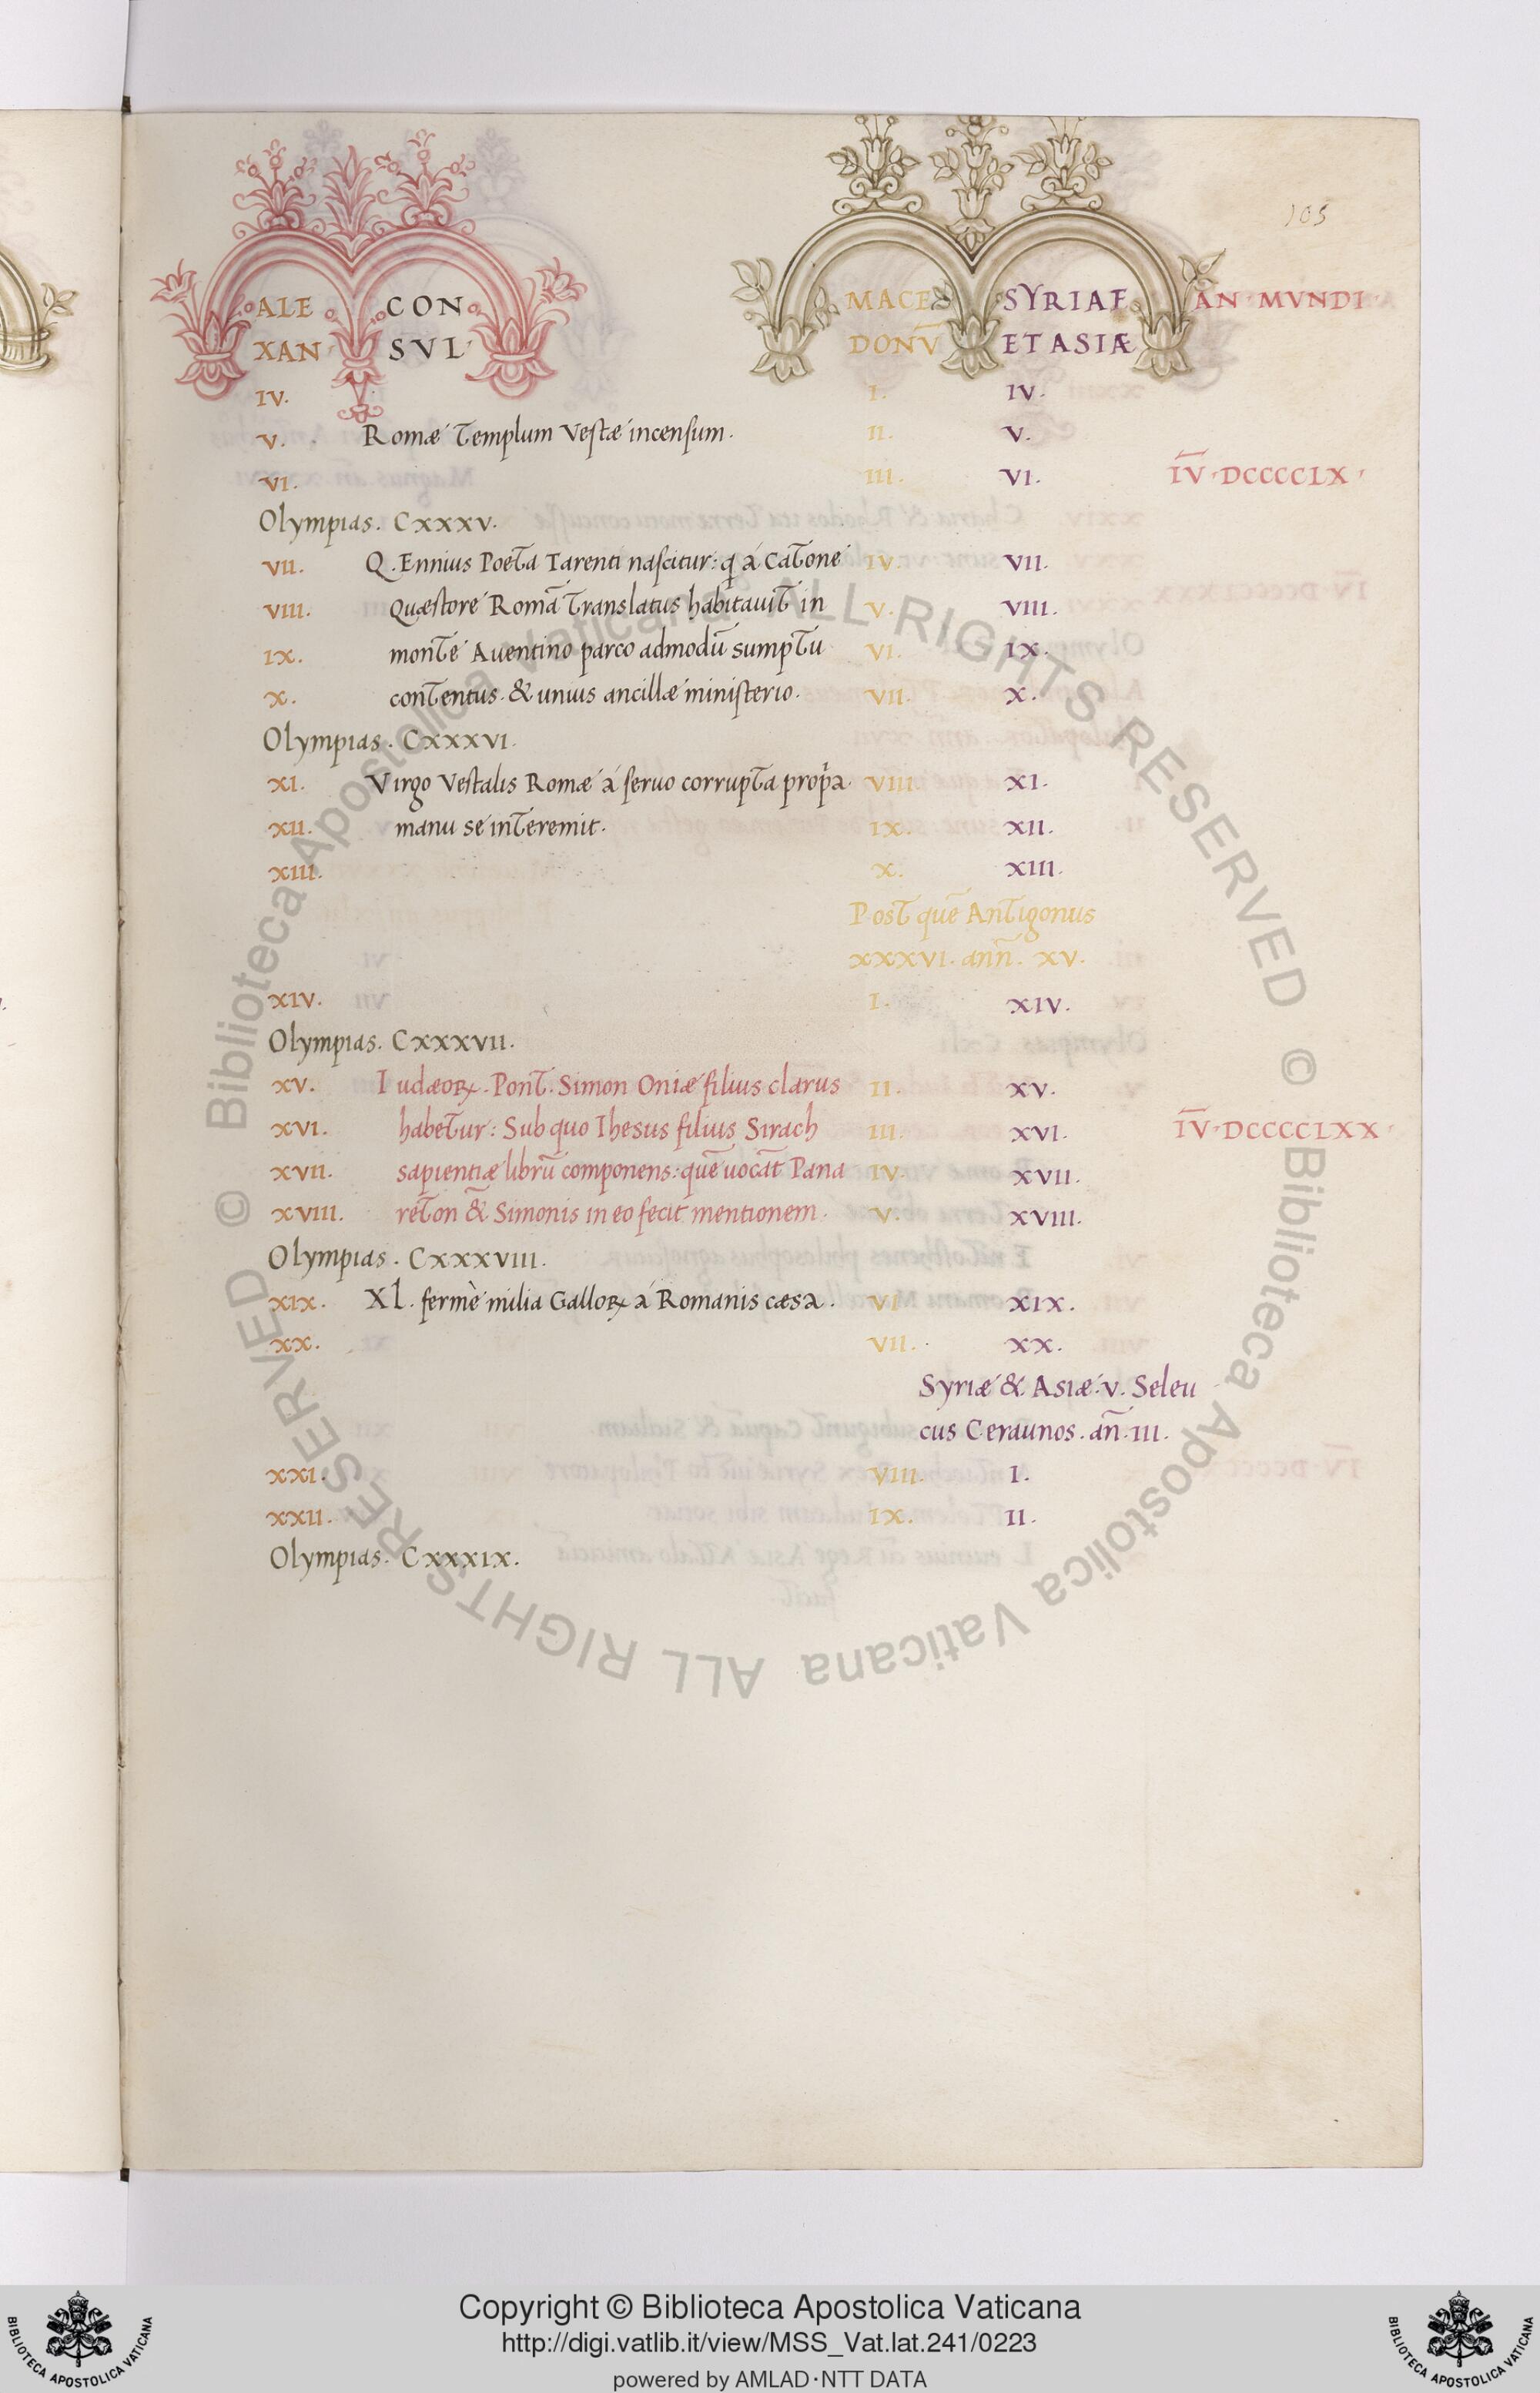 105
ALE CON MACE SYRIAE AN MVNDI
XAN SVL DONV̅ ET ASIÆ
IV. I. IV.
V. Romæ Templum Vestæ incensum. II. V.
VI. III. VI. I̅V̅·DCCCCLX
Olympias. CXXXV.
VII. Q. Ennius Poeta Tarenti nascitur: q̇ á Catone IV. VII.
VIII. Quæstore Romā translatus habitauit in V. VIII.
IX. monte Auentino parco admodū sumptu VI. IX.
X. contentus. & unius ancillæ ministerio. VII. X.
Olympias. CXXXVI.
XI. Virgo Vestalis Romæ á seruo corrupta prop̃a VIII. XI.
XII. manu se interemit. IX. XII.
XIII. X. XIII.
Post quē Antigonus
XXXVI. an̄n. XV.
XIV. I. XIV.
Olympias. CXXXVII.
XV. Iudæoꝝ. Pont. Simon Oniæ filius clarus II. XV.
XVI. habetur: Sub quo Ihesus filius Sirach III. XVI. I̅V̅·DCCCCLXX
XVII. sapientiæ librū componens: quē uocāt Pana IV. XVII.
XVIII. reton &̄ Simonis in eo fecit mentionem. V. XVIII.
Olympias. CXXXVIII.
XIX. XL. fermè milia Galloꝝ á Romanis cæsa. VI XIX.
XX. VII. XX.
Syriæ & Asiæ. v. Seleu
cus Ceraunos. an̄. III.
XXI. VIII. I.
XXII. IX. II.
Olympias. CXXXIX.
© Biblioteca Apostolica Vaticana ALL RIGHTS RESERVED © Biblioteca Apostolica Vaticana ALL RIGHTS RESERVED
Copyright © Biblioteca Apostolica Vaticana
http://digi.vatlib.it/view/MSS_Vat.lat.241/0223
powered by AMLAD·NTT DATA
BIBLIOTECA APOSTOLICA VATICANA
BIBLIOTECA APOSTOLICA VATICANA